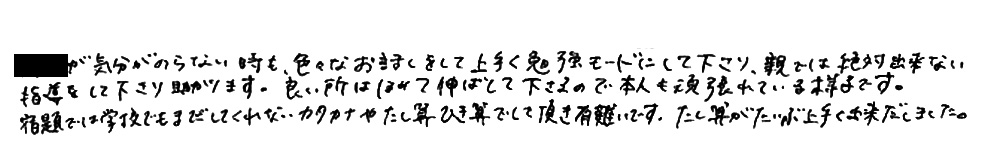 が気分がのらない時も、色々なお話しをして上手く勉強モードにして下さり、親では絶対出来ない
指導をして下さり助かります。良い所はほめて伸ばして下さるので本人も頑張れている様子です。
宿題では学校でもまだしてくれないカタカナやたし算ひき算でして頂き有難いです。たし算がだいぶ上手く出来だしました。